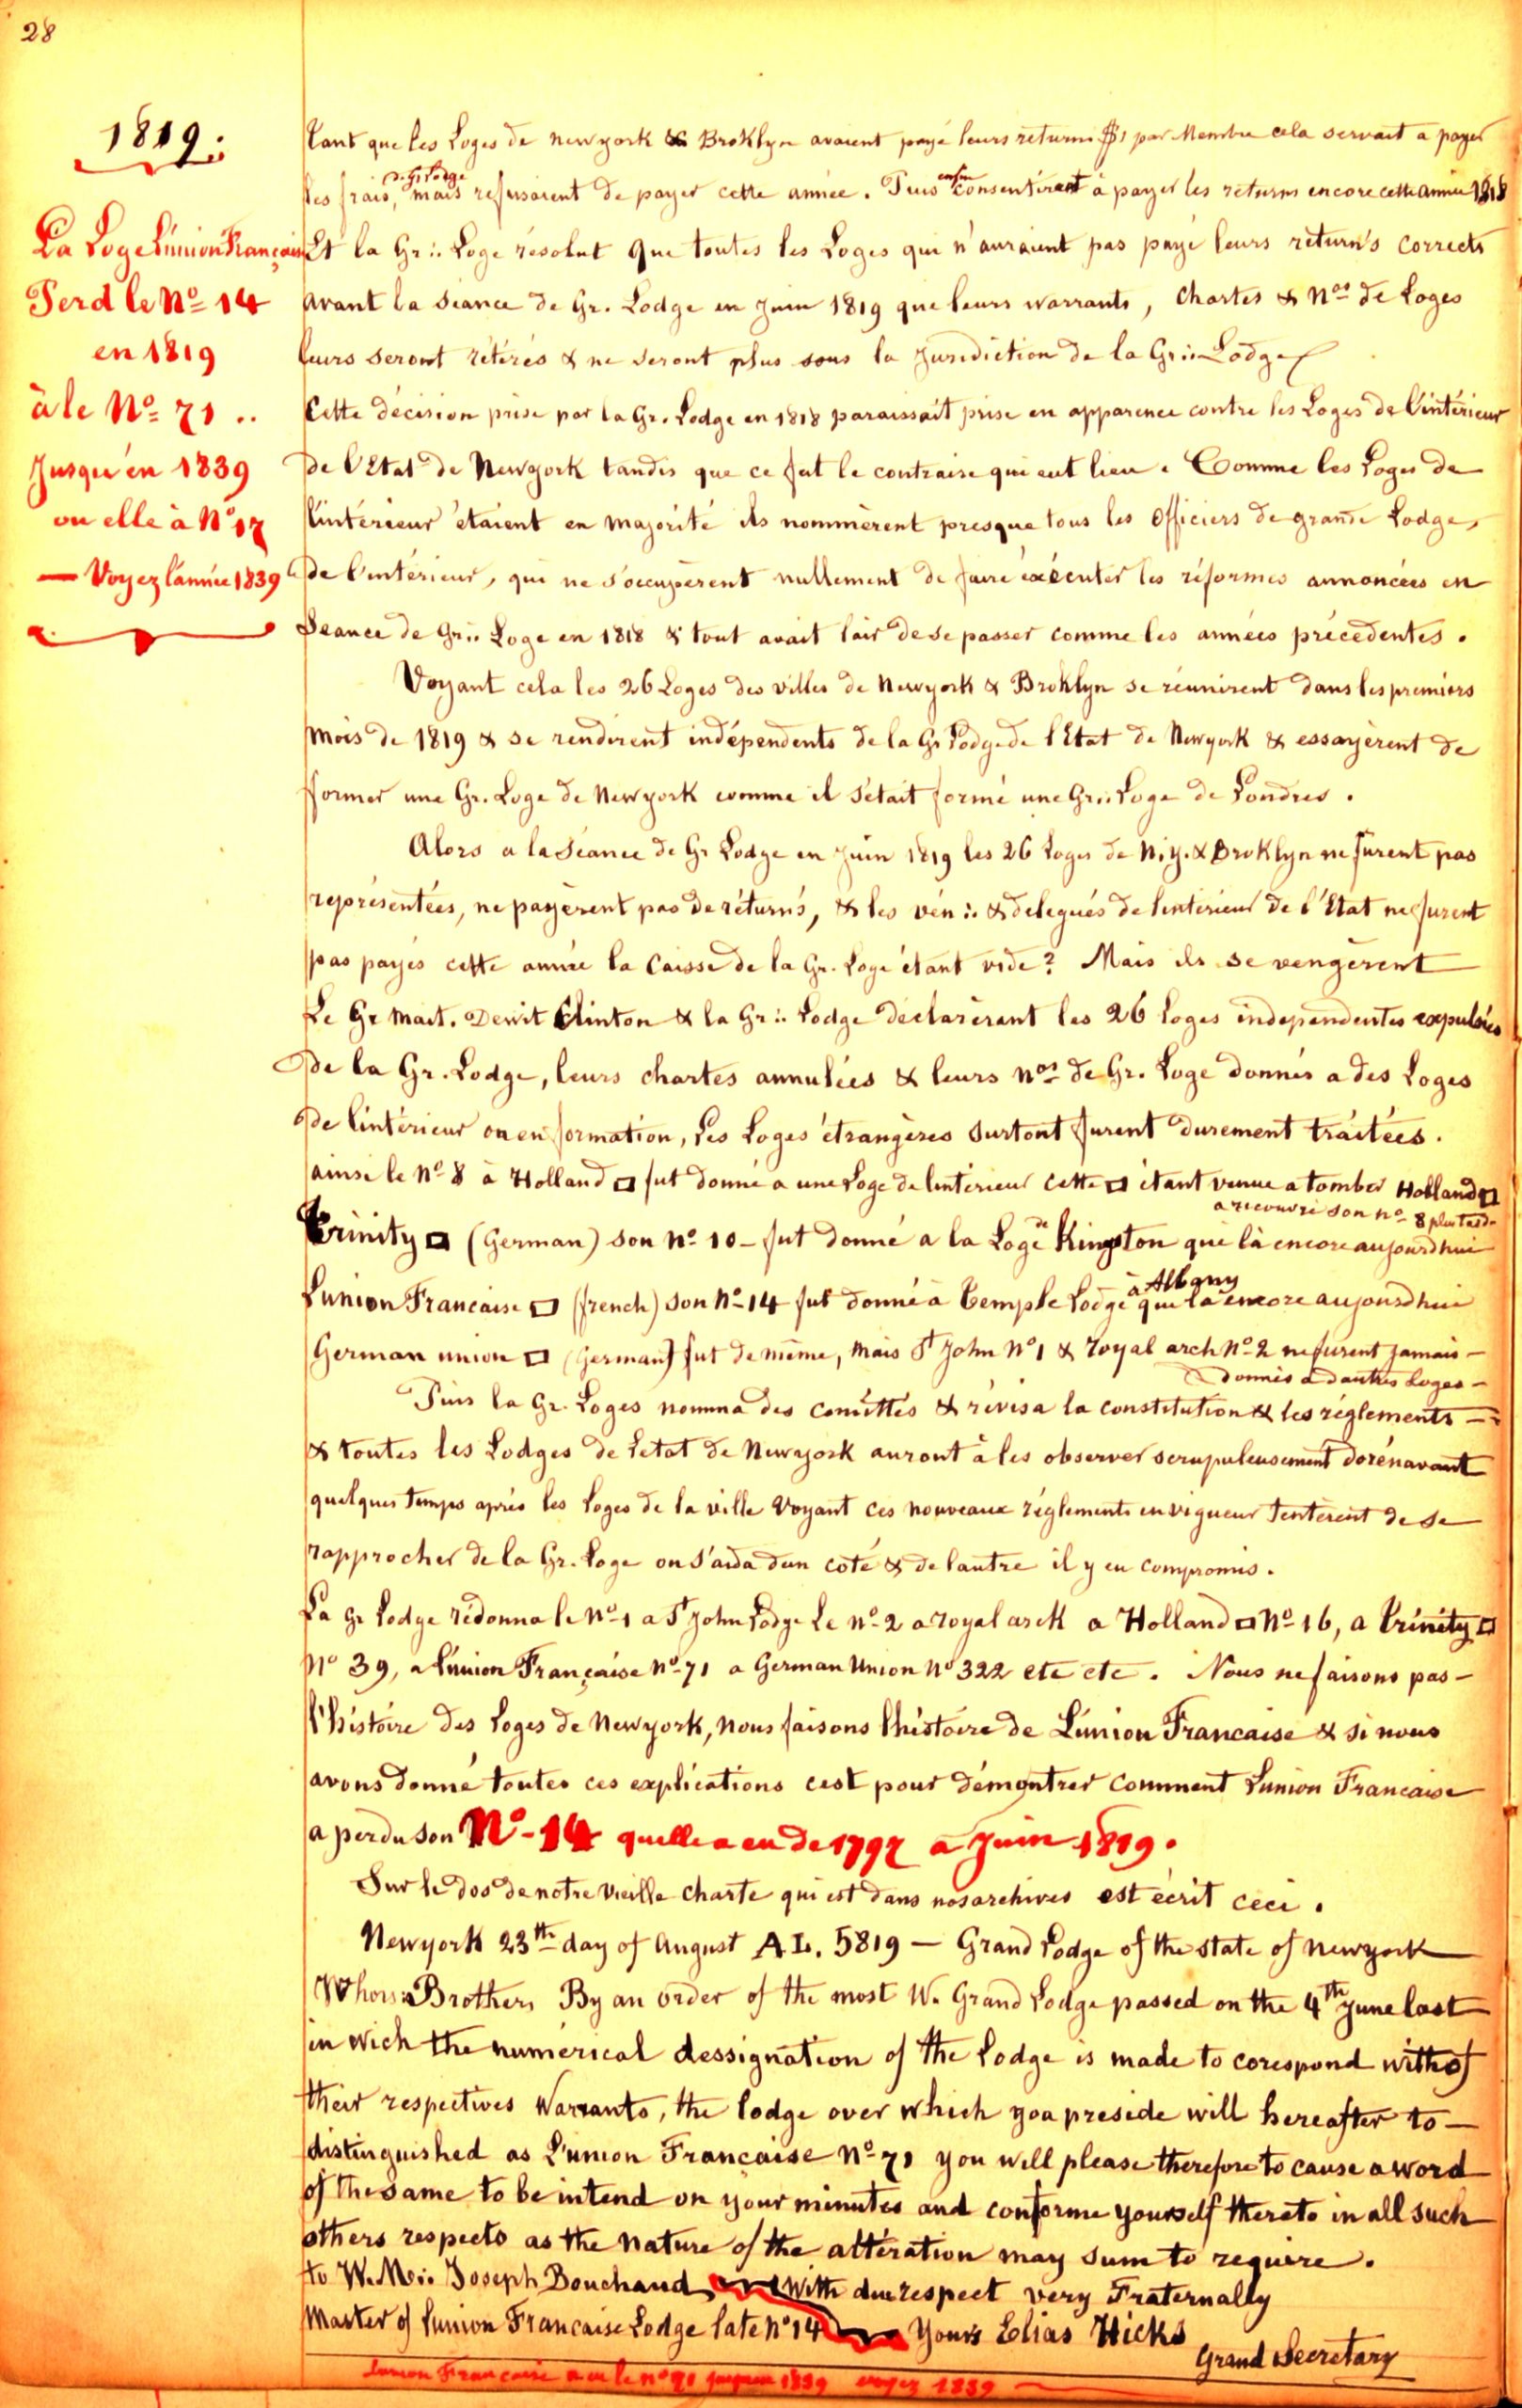 28
1819.
La Loge L'union Française
Perd le No 14
en 1819
à le No 71 ..
Jusqu'en 1839
ou elle à No 17
— Voyez l'année 1839
tant que les Loges de newyork & Broklyn avaient payé leurs returns $1 par Membre cela servait a payer
d. Gr Lodge
les frais, mais refusaient de payer cette année. Puis enfin consentirent à payer les returns encore cette année 1818
Et la Gr∴ Loge résolut que toutes les Loges qui n'auraient pas payé leurs return's corrects
avant la séance de Gr. Lodge en Juin 1819 que leurs warrants, Chartes & Nos de Loges
leurs seront rétirés & ne seront plus sous la Juridiction de la Gr∴ Lodge
Cette décision prise par la Gr. Lodge en 1818 paraissait prise en apparence contre les Loges de l'intérieur
de l'Etat de Newyork tandis que ce fut le contraire qui eut lieu. Comme les Loges de
l'intérieur étaient en majorité ils nommèrent presque tous les officiers de grande Lodge,
de l'intérieur, qui ne s'occupèrent nullement de faire éxécuter les réformes annoncées en
Seance de Gr∴ Loge en 1818 & tout avait l'air de se passer comme les années précédentes.
Voyant cela les 26 Loges des villes de Newyork & Broklyn se réunirent dans les premiers
mois de 1819 & se rendirent indépendents de la Gr Lodge de l'Etat de Newyork & essayèrent de
former une Gr. Loge de Newyork comme il s'était formé une Gr∴ Loge de Londres.
Alors a la séance de Gr Lodge en Juin 1819 les 26 Loges de N.Y. & Broklyn ne furent pas
représentées, ne payèrent pas de réturns, & les vén∴ & delegués de l'intérieur de l'Etat ne furent
pas payés cette année la Caisse de la Gr. Loge étant vide? Mais ils se vengèrent
Le Gr Mait. Dewit Clinton & la Gr∴ Lodge déclarèrent les 26 loges independentes expulsées
de la Gr. Lodge, leurs chartes annulées & leurs nos de Gr. Loge donnés a des Loges
de l'intérieur ou en formation, Les Loges étrangères surtout furent durement traitées.
ainsi le No 8 à Holland □ fut donné a une Loge de l'intérieur cette □ étant venue a tomber Holland □
a recouvré son no 8 plus tard-
Trinity □ (German) son No 10 - fut donné a la Loge de Kingston qui l'à encore aujourd'hui
à Albany
L'union Francaise □ (french) son No 14 fut donné à Temple Lodge qui l'a encore aujourdhui
German union □ (German) fut de même, mais St John No 1 & Royal arch No 2 ne furent Jamais -
donnés a d'autres Loges -
Puis la Gr. Loges nomma des comittés & révisa la constitution & les réglements -
& toutes les Lodges de Letat de Newyork auront à les observer scrupuleusement dorénavant
quelques temps après les Loges de la ville Voyant ces nouveaux réglements en vigueur Tentèrent de se
rapprocher de la Gr. Loge on s'aida d'un coté & de l'autre il y eu compromis.
La Gr Lodge rédonna le No 1 a St John Lodge Le no 2 a royal arck a Holland □ No 16, a Trinity □
No 39, a L'union Française No 71 a German Union No 322 etc etc. Nous ne faisons pas -
l'histoire des Loges de Newyork, nous faisons l'histoire de L'union Francaise & si nous
avons donné toutes ces explications cest pour démontrer comment L'union Francaise
a perdu son No - 14 quelle a eu de 1797 a Juin 1819.
Sur le dos de notre Vieille Charte qui est dans nos archives est écrit ceci.
Newyork 23th day of August A L. 5819 — Grand Lodge of the state of Newyork
Whors∴ Brother, By an order of the most W. Grand Lodge passed on the 4th June last
in wich the numérical dessignation of the Lodge is made to corespond with of
their respectives Warrants, the lodge over which you préside will hereafter to -
distinguished as L'union Francaise No 71 you will please therefore to cause a word
of the same to be intend on your minutes and conforme yourself thereto in all such
others respects as the nature of the altération may sum to require.
to W. M∴ Joseph Bouchaud with due respect very Fraternally
Master of L'union Francaise Lodge late No 14 Yours Elias Hicks
Grand Secretary
L'union Francaise a eu le no 71 jusqu'en 1839 voyez 1839